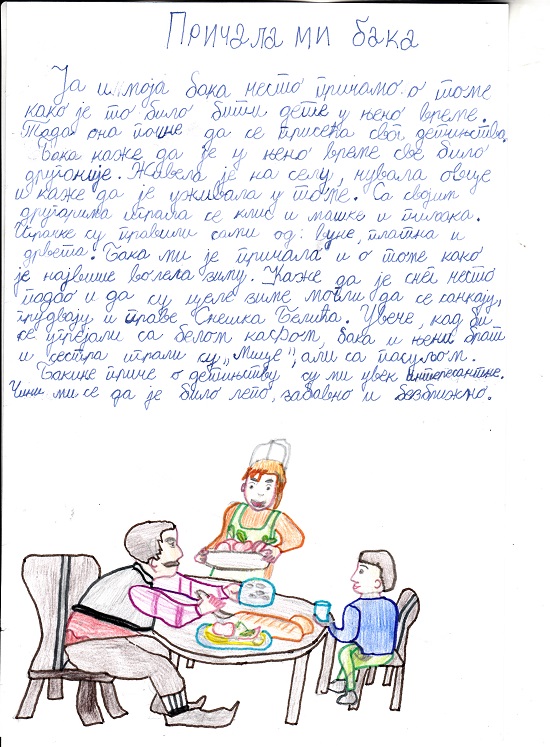 Причала ми бака
Ја и моја бака често причамо о томе
како је то било бити дете у њено време.
Тада она почне да се присећа свог детињства.
Бака каже да је у њено време све било
другачије. Живела је на селу, чувала овце
и каже да је уживала у томе. Са својим
другарима играла се клис и машке и пиљака.
Играчке су правили сами од: вуне, платна и
дрвета. Бака ми је причала и о томе како
је највише волела зиму. Каже да је снег често
падао и да су целе зиме могли да се санкају,
грудвају и праве Снешка Белића. Увече, кад би
се угрејали са белом кафом, бака и њени брат
и сестра играли су „Мице", али са пасуљом.
Бакине приче о детињству су ми увек интересантне.
Чини ми се да је било лепо, забавно и безбрижно.